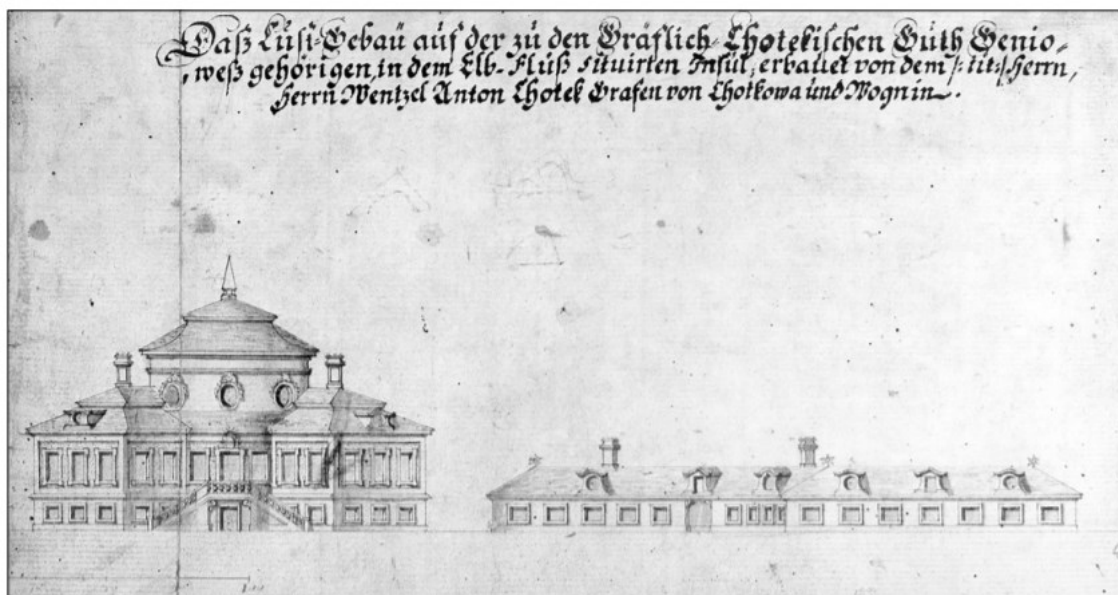 Daß Lust-Gebäu auf der zu den Gräflich-Chotekischen Guth Genio-
weß gehörigen, in dem Elb-Fluß situirten Insul, erbauet von dem /:tit:/ Herrn,
Herrn Wentzel Anton Chotek Grafen von Chotkowa und Wognin.